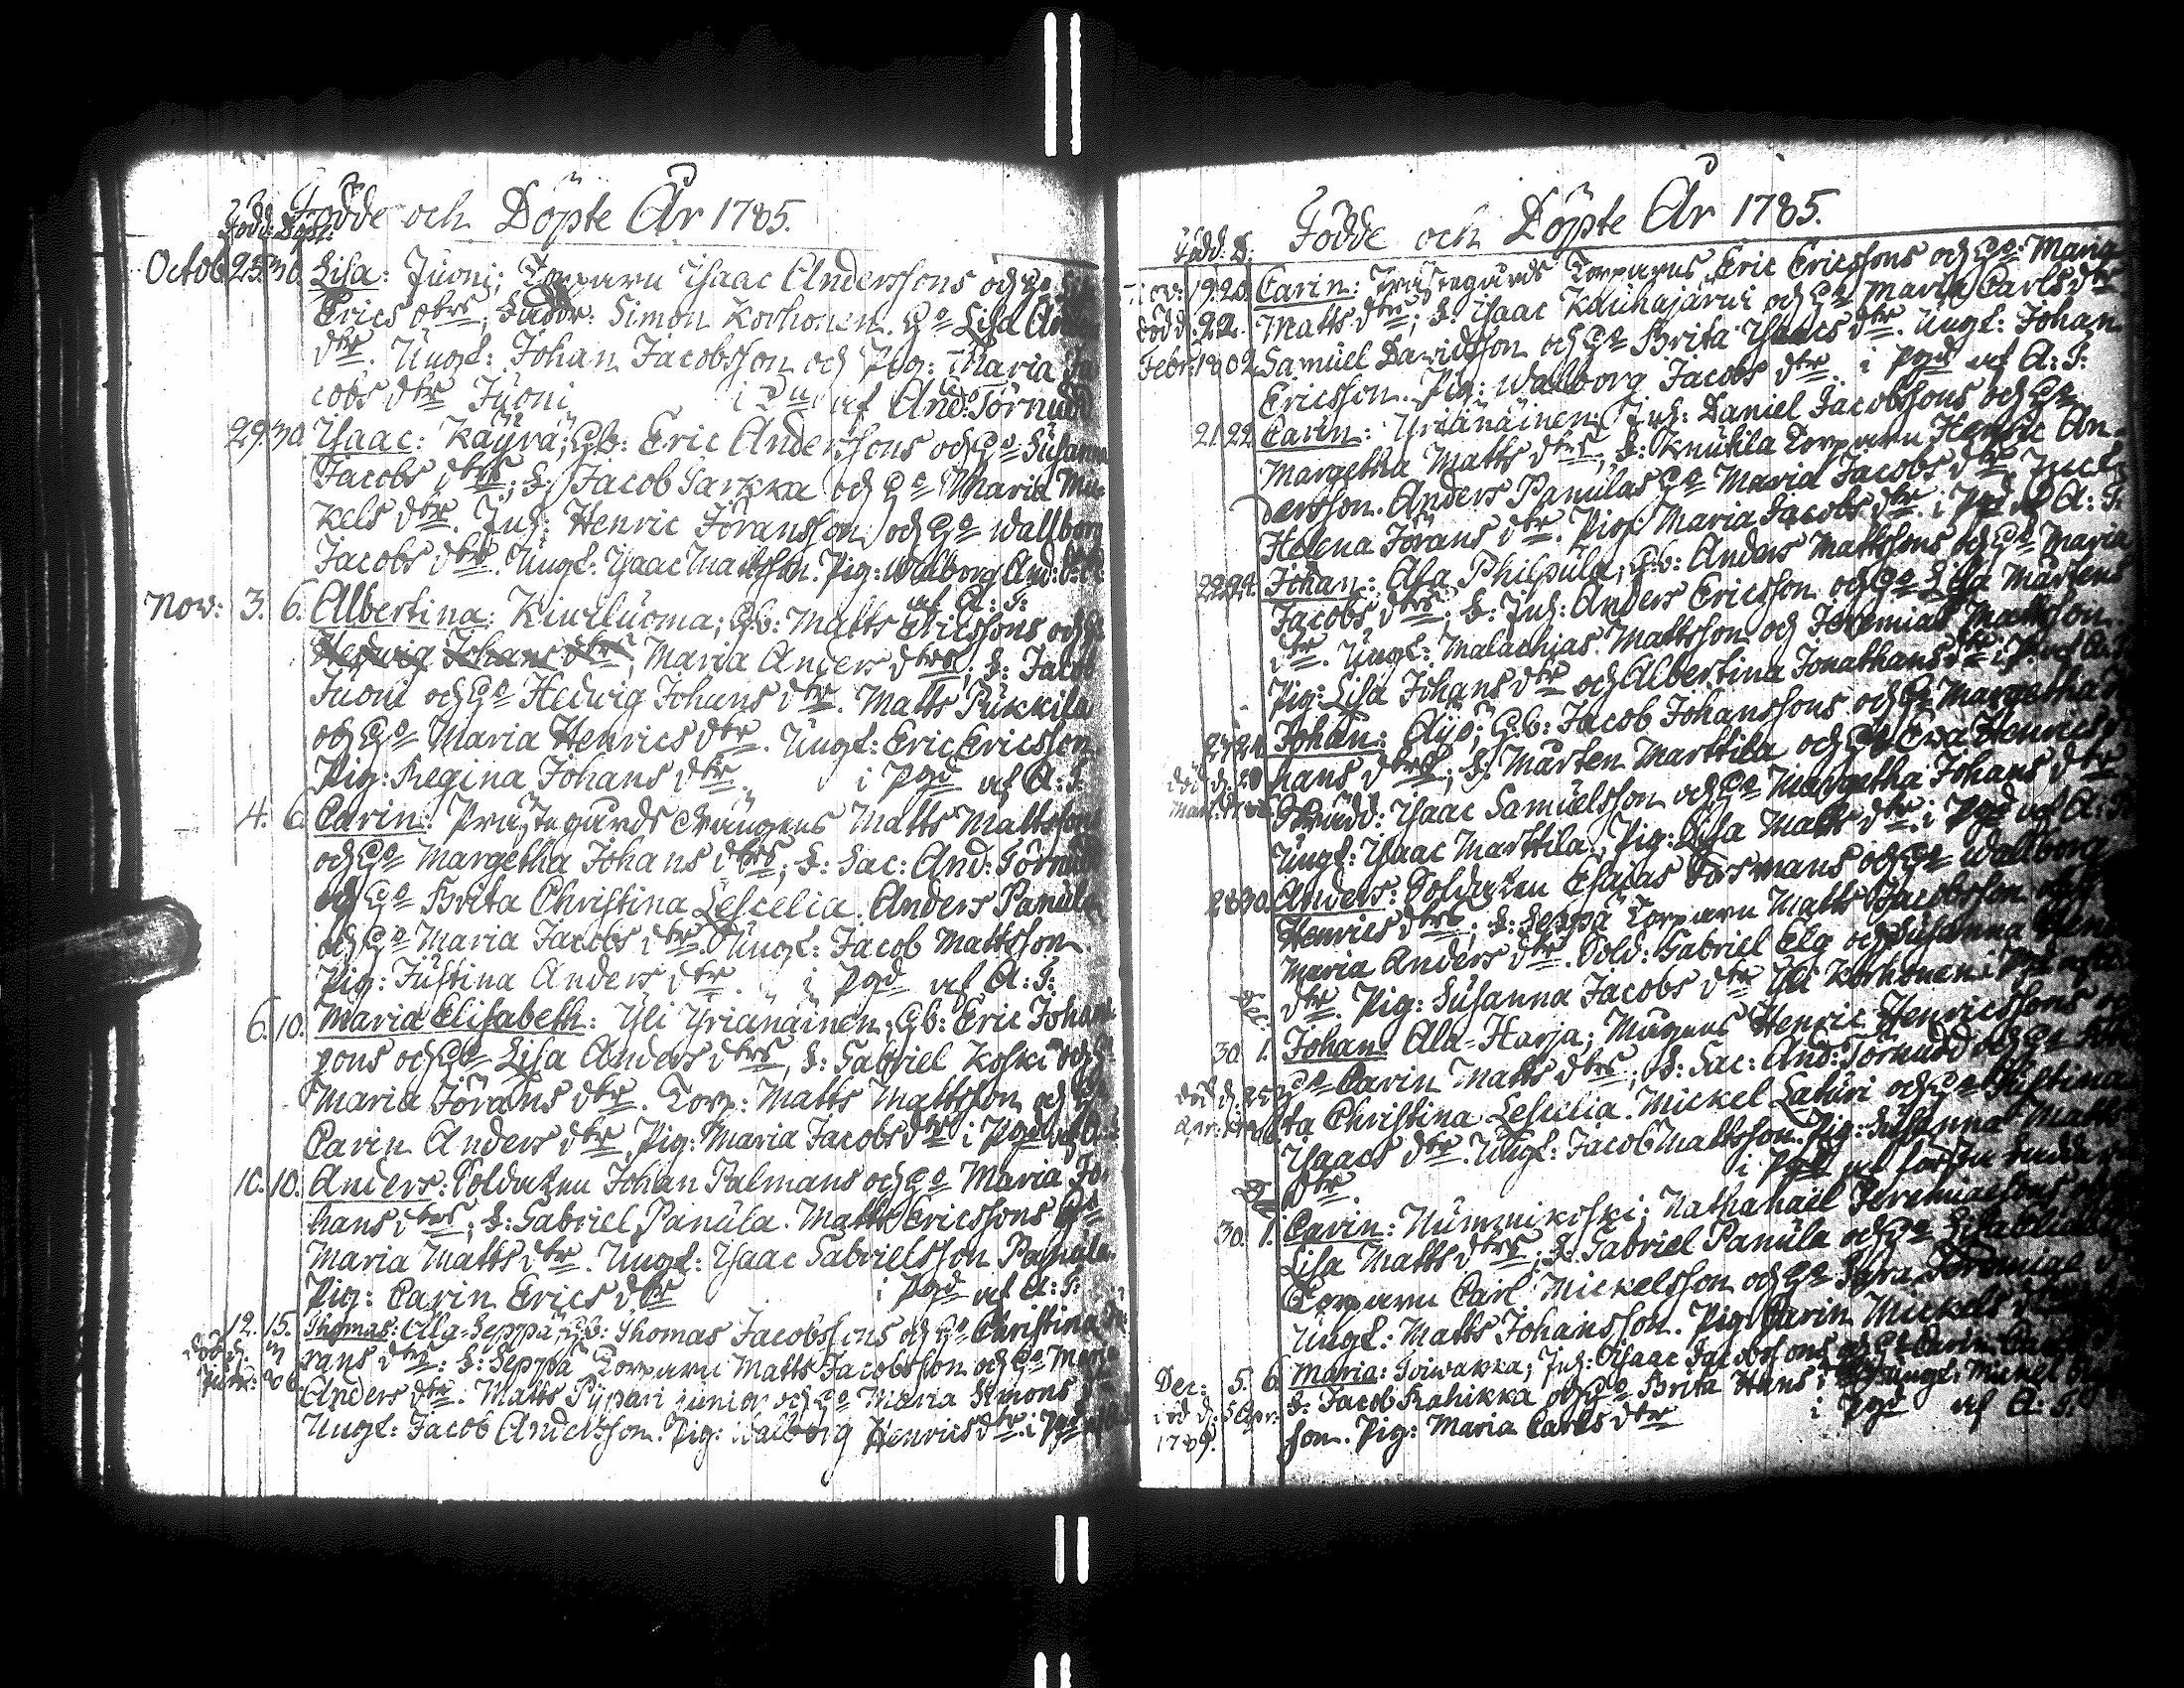 Födde och Döpte År 1785.
Född. Döpt.
Octob 25. 30. Lisa: Juoni; Torparn Isaac Anderssons och H:o
Erics dtrs; Fadd: Simon Korhonen. H:o Lisa
dtr. Ungk: Johan Jacobsson och Pig: Maria Ja
cobs dtr Juoni i af And: Törnudd
29. 30. Isaac: Käyrä; Gb: Eric Anderssons och H:o Susanna
Jacobs dtrs; F: Jacob Sarkka och H:o Maria Mic
kels dtr. Inh: Henric Jöransson och H:o Wallborg
Jacobs dtr. Ungk: Isaac Mattsson. Pig: Walborg And: dtr
af A: T:
Nov: 3. 6. Albertina: Kiviluoma; Gb: Matts Ericssons och H:o
Hedwig Johans dtrs; Maria Anders dtrs; F: Jacob
Juoni och H:o Hedwig Johans dtr. Matts Pukkila
och H:o Maria Henrics dtr. Ungk: Eric Ericsson.
Pig: Regina Johans dtr. i Pgd af A: T:
4. 6. Carin: Prästegårds drängens Matts Mattssons
och H:o Margetha Johans dtrs; F: Sac: And: Törnudd
och H:o Brita Christina Lescelia. Anders Panula
och H:o Maria Jacobs dtr. Ungk: Jacob Mattsson.
Pig: Justina Anders dtr. i Pgd af A: T:
6. 10. Maria Elisabeth: Yli Yrjänäinen; Gb: Eric Johans
sons och H:o Lisa Anders dtrs; F: Gabriel Koski och H:o
Maria Jörans dtr. Torp: Matts Mattsson och H:o
Carin Anders dtr. Pig: Maria Jacobs dtr i Pgd af A:
10. 10. Anders: Soldaten Johan Palmans och H:o Maria Jo
hans dtrs; F: Gabriel Panula. Matts Ericssons H:o
Maria Matts dtr. Ungk: Isaac Gabrielsson Panula.
Pig: Carin Erics dtr i Pgd af A: T:
12. 15. Thomas: Ala-Seppä; Gb: Thomas Jacobssons och H:o Christina Jö
död d. rans dtrs: F: Seppä Torparn Matts Jacobsson och H:o Maria
Anders dtr. Matts Pypari junior och H:o Maria Simons
Ungk: Jacob Andersson. Pig: Walborg Henrics dtr. i Pgd
Födde och Döpte År 1785.
Född. D.
Nov: 19. 20. Carin: Prästegårds Torparns Eric Ericssons och H:o Marg
död d. 22. Matts dtrs; F: Isaac Kauhajärvi och H:o Maria Carls dtr
Febr: 1802 Samuel Davidsson och H:o Brita Isaacs dtr. Ungk: Johan
Ericsson. Pig: Walborg Jacobs dtr. i Pgd af A: T:
21. 22. Carin: Yrjänäinen; Inh: Daniel Jacobssons och H:o
Margetha Matts dtrs; F: Knutila Torparn Henric An
dersson. Anders Panulas H:o Maria Jacobs dtr.
Helena Jörans dtr. Pig: Maria Jacobs dtr. i Pgd af A: T:
22. 24. Johan: Ala Philpula; Gb: Anders Mattssons och H:o Maria
Jacobs dtrs; F: Inh: Anders Ericsson och H:o Lisa Mårtens
dtr. Ungk: Malachias Mattsson och Jeremias Mattsson.
Pig: Lisa Johans dtr och Albertina Jonathans dtr i P. af A: T:
27. 29. Johan: Äijö; Gb: Jacob Johanssons och H:o Margetha
död d. 20 hans dtrs; F: Mårten Marttila och H:o Eva Henrics
Skrädd: Isaac Samuelsson och H:o Margetha Johans dtr
Ungk: Isaac Marttila. Pig: Lisa Matts dtr. i Pgd af A: T:
28. 30. Anders: Soldaten Esaias Forsmans och H:o Wallborg
Henrics dtrs; F: Seppä Torparn Matts Jacobsson
Maria Anders dtr. Sold: Gabriel Elg och Susanna
dtr. Pig: Susanna Jacobs dtr Yli Korhonen i Pgd
Dec:
30. 1. Johan: Ala-Harja; Mågens Henric Henricssons
död d. H:o Carin Matts dtrs; F: Sac: And: Törnudd och H:o Bri
ta Christina Lescelia. Mickel Laturi och H:o Justina
Isaacs dtr. Ungk: Jacob Mattsson. Pig: Susanna Matts
dtr. i Pgd af första Fadd
D
30. 1. Carin: Nummikoski; Nathanael Jeremiassons
Lisa Matts dtrs; F: Gabriel Panula och H:o Lisa
Torparn Carl Mickelsson och H:o Sara Jeremiae
Ungk: Matts Johansson. Pig: Carin Mickels
Dec: 5. 6. Maria: Toivakka; Inh: Isaac Jacobssons och H:o Carin
död d. 5 Apr: F: Jacob Rahikka och H:o Brita Hans Ungk: Mickel
1789. son. Pig: Maria Carls dtr i Pgd af A: T: